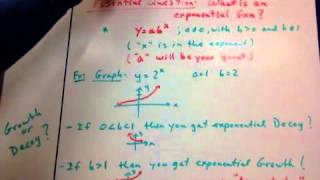 Essential Question: What is an
exponential fxn?
y=abˣ; a≠0, with b>0 and b≠1
("x" is in the exponent)
("a" will be your y-int)
Ex: Graph: y=2ˣ a=1 b=2
y
x
Growth
or
Decay?
- If 0<b<1 then you get exponential Decay!
- If b>1 then you get exponential Growth!